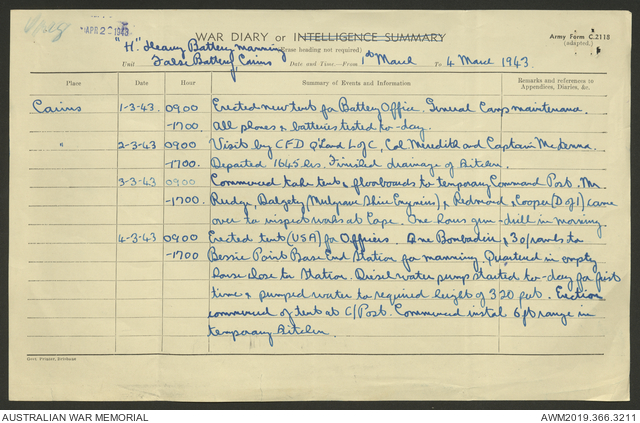 APR 20 1943
WAR DIARY or INTELLIGENCE SUMMARY
(Erase heading not required)
Army Form C.2118
(adapted.)
"H" Heavy Battery manning
Unit False Battery Cairns Date and Time—From 1st March To 4 March 1943.
Place Date Hour Summary of Events and Information Remarks and references to Appendices, Diaries, &c.
Cairns 1-3-43. 0900 Erected new tent for Battery Office. General Camp maintenance.
-1700. All phones & batteries tested to-day.
" 2-3-43 0900 Visits by CFD Q'land L of C, Col Meredith and Captain McKenna.
-1700. Departed 1645 hrs. Finished drainage of Kitchen.
3-3-43 0900 Commenced take tents & floorboards to temporary Command Post. Mr.
-1700. Rudge, Dalgety (Mulgrave Shire Engineers) & Redmond & Cooper (D of I) came
over to inspect works at Cape. One hours gun-drill in morning.
4-3-43 0900 Erected tent (USA) for Officers. One Bombadier & 3 O/ranks to
-1700 Bessie Point Base End Station for manning. Quartered in empty
house close to Station. Diesel water pump started to-day for first
time & pumped water to required height of 320 feet. Erection
commenced of tent at C/Post. Commenced instal 6 ft range in
temporary Kitchen.
Govt. Printer, Brisbane
AUSTRALIAN WAR MEMORIAL
AWM2019.366.3211